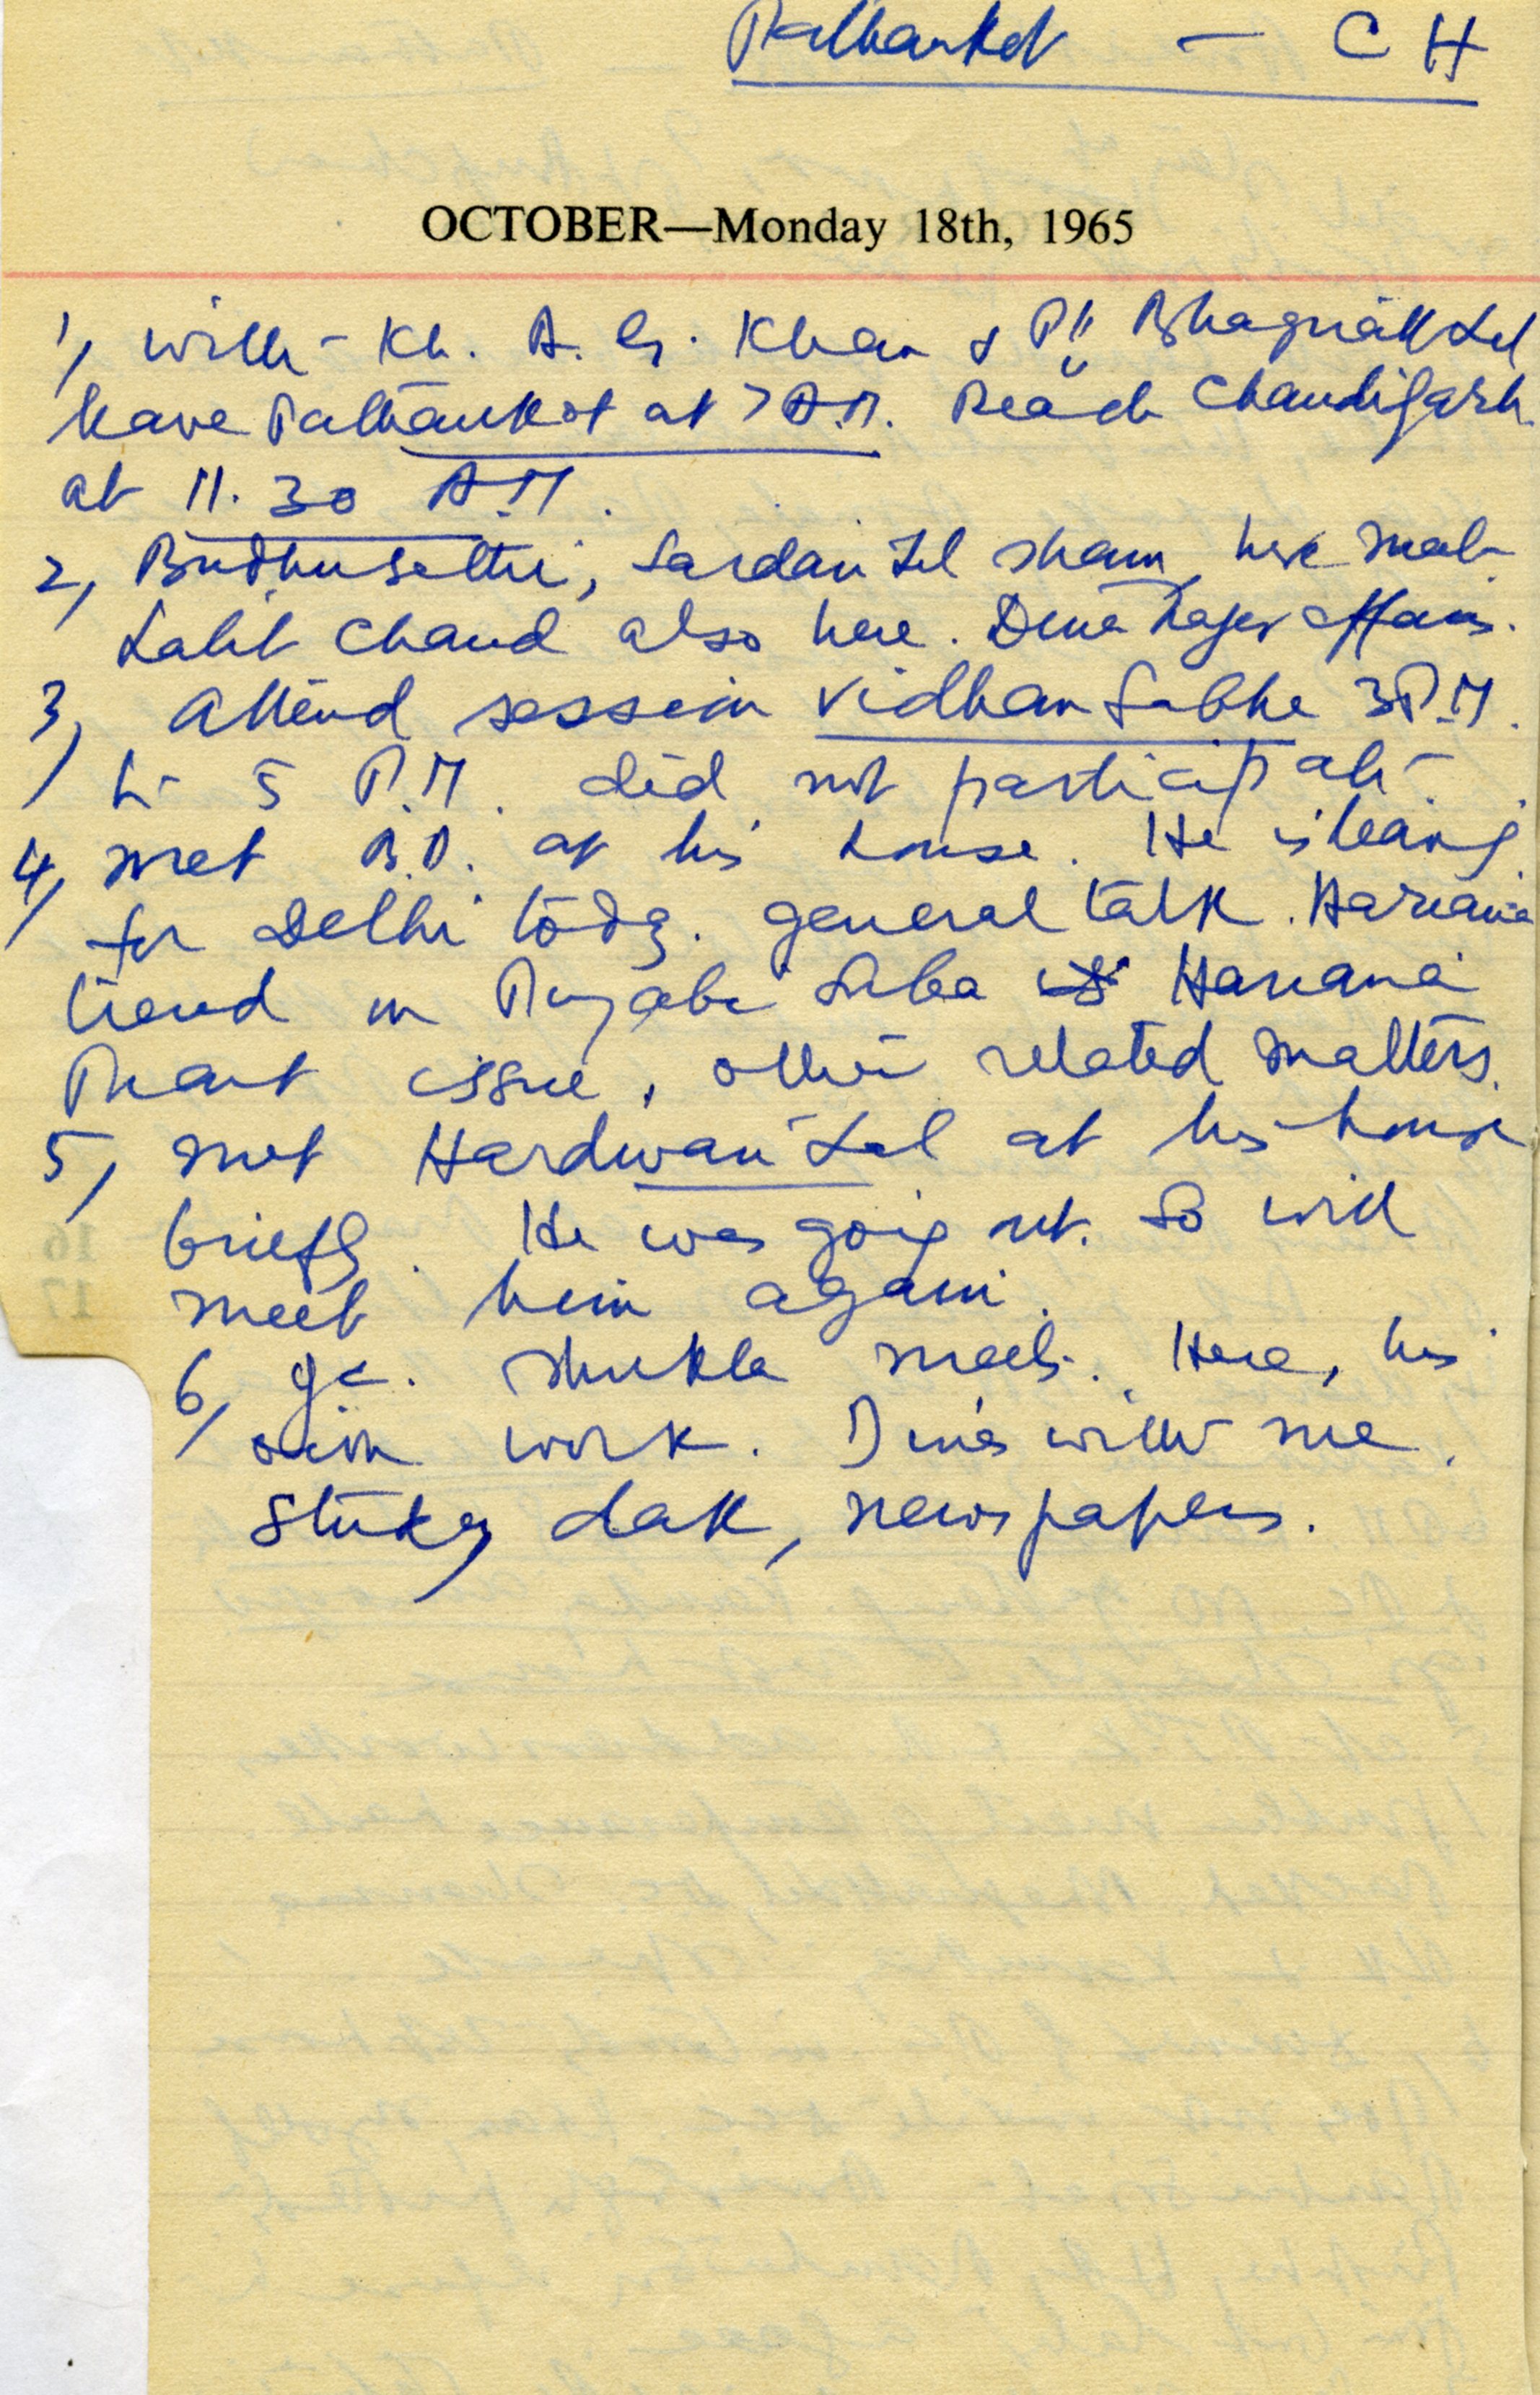 Pathankot — C H
OCTOBER—Monday 18th, 1965
1, with Kh. A. G. Khan & Pt. Bhagnath Lal
leave Pathankot at 7 A.M. Reach Chandigarh
at 11.30 A.M.
2, Budhu Sethi, Sardari Lal Sham, here meet
Lalit Chand also here. Dina Nager affairs.
3, attend session Vidhan Sabha 3 P.M.
to 5 P.M. did not participate
4, met B.D. at his house. He is leaving
for Delhi today. general talk. Hariana
trend in Punjabi Suba Hariana
Prant issue, other related matters.
5, met Hardwari Lal at his house
briefly. He was going out. So will
meet him again.
6, Shukla meets. Here, his
own work. Dines with me.
dak, newspapers.